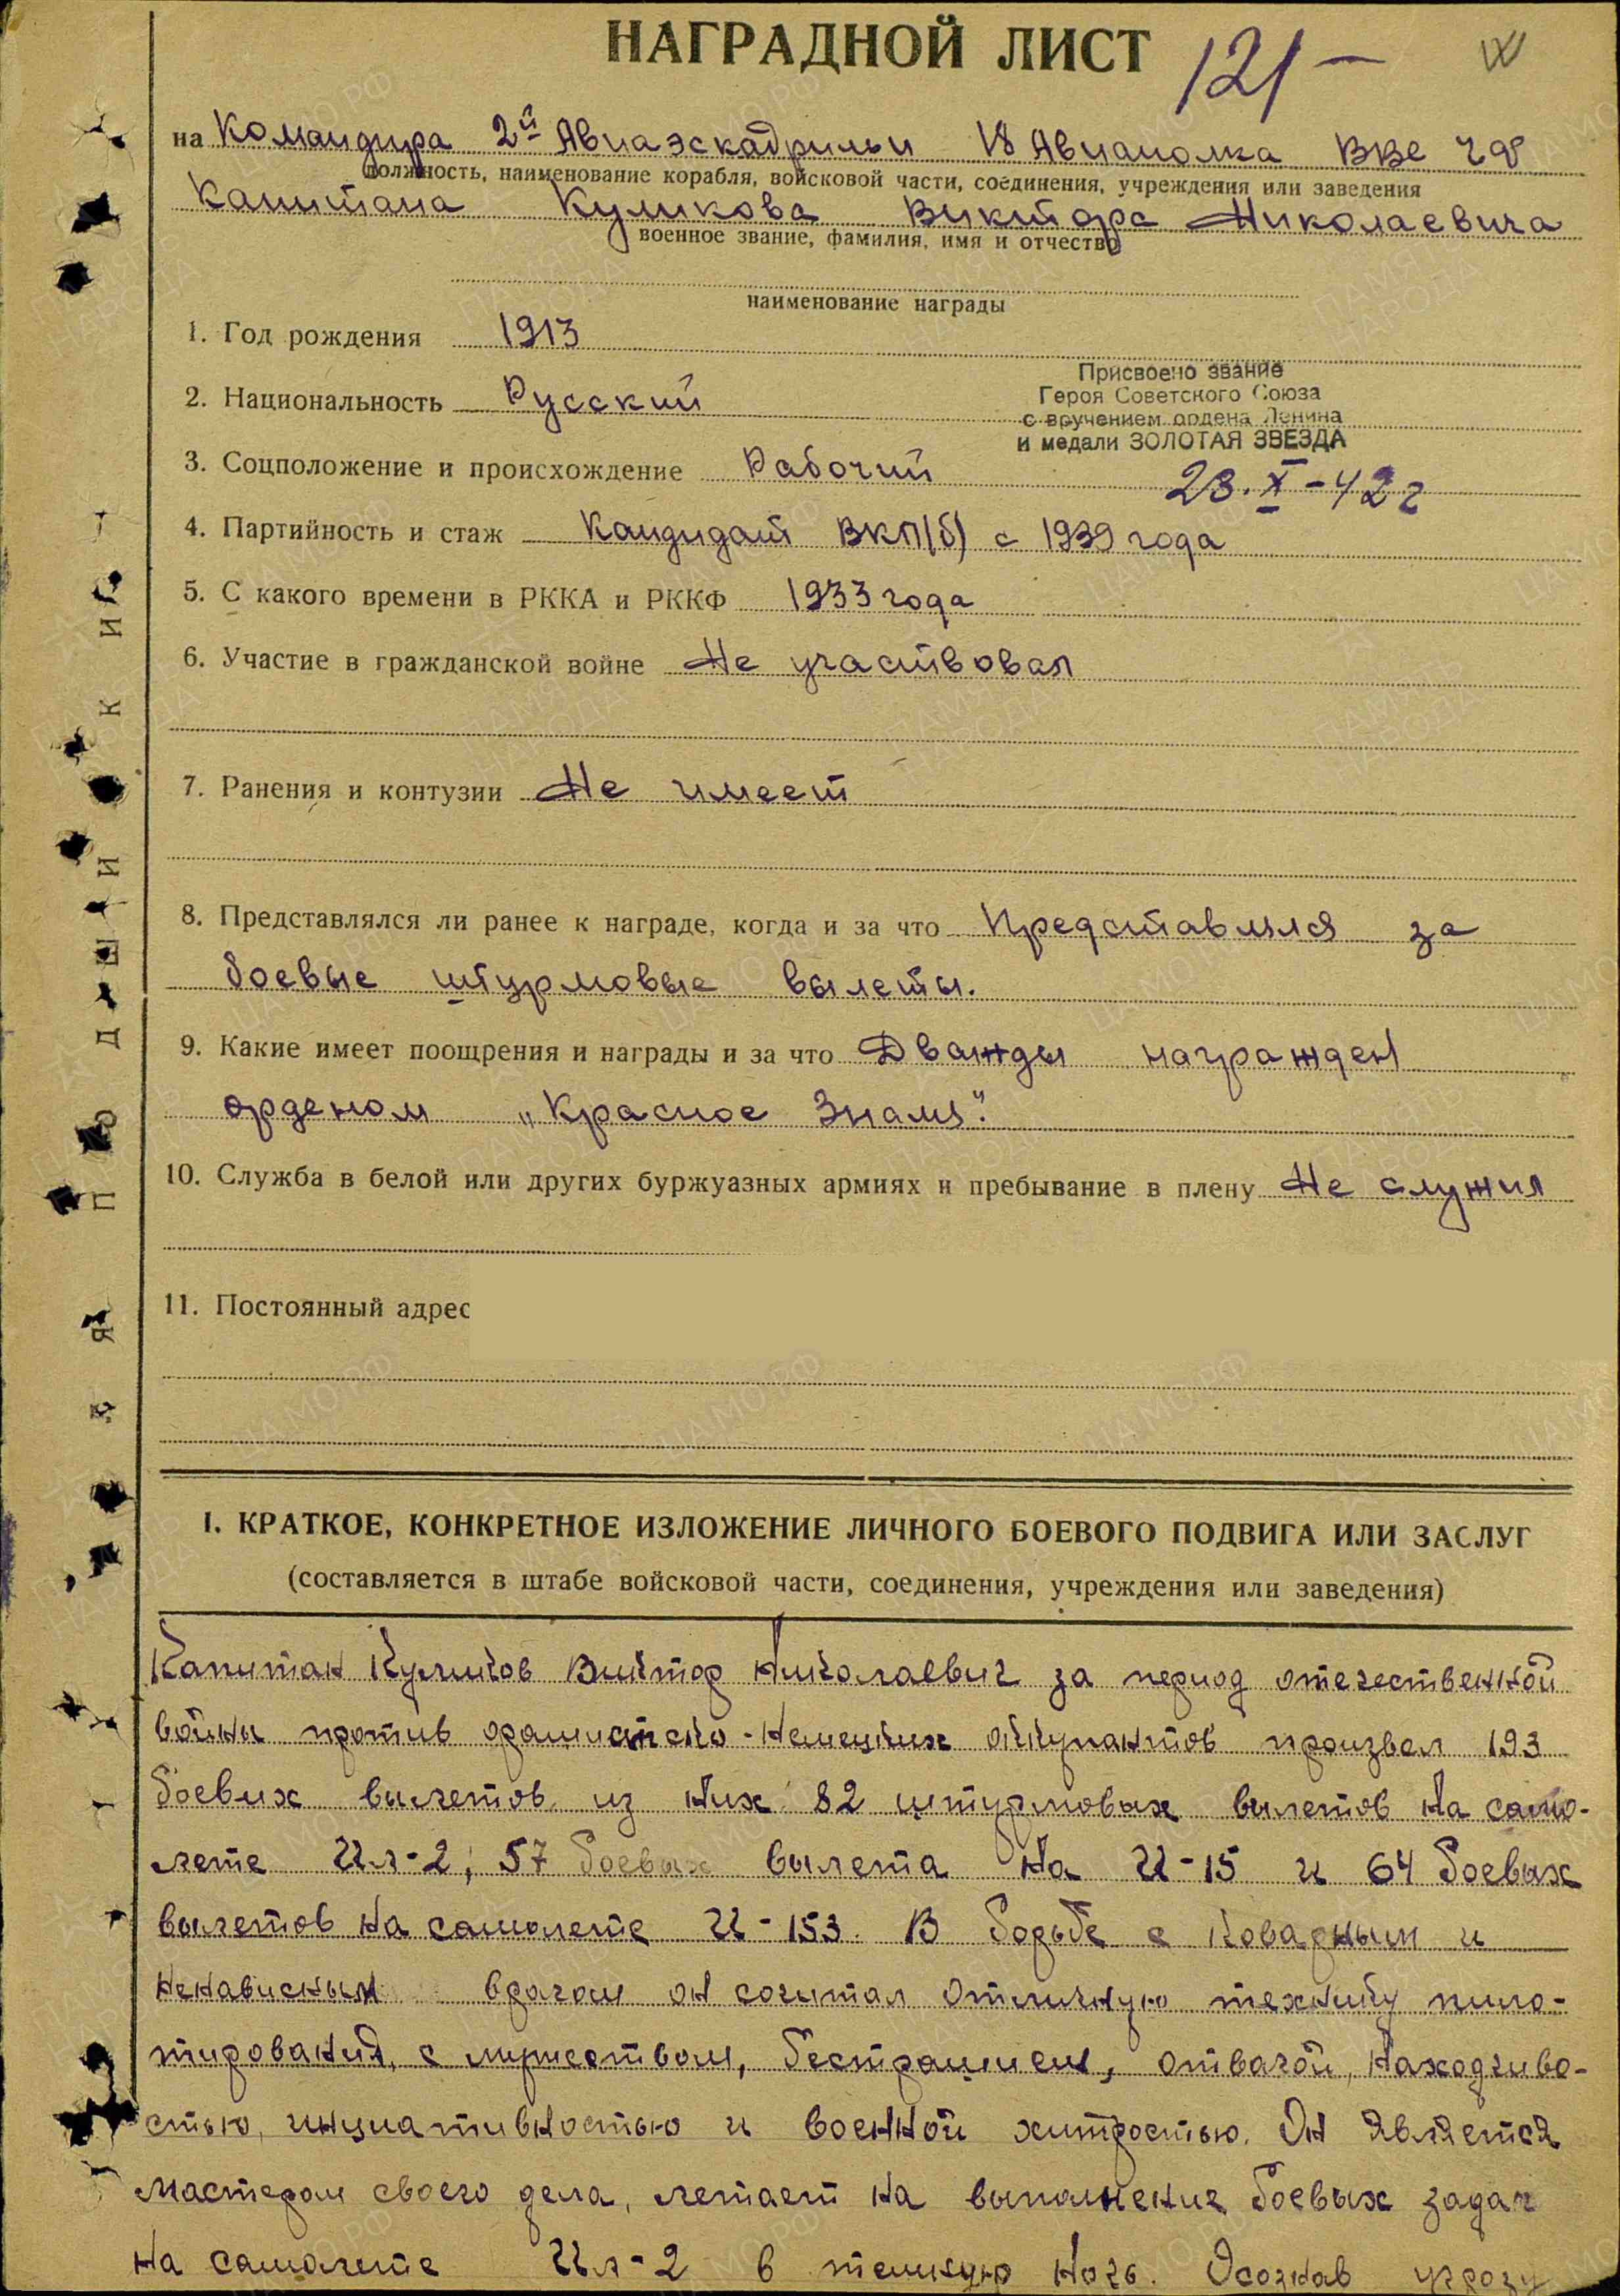 НАГРАДНОЙ ЛИСТ 121-
на Командира 2й Авиаэскадрильи 18 Авиаполка ВВС ЧФ
должность, наименование корабля, войсковой части, соединения, учреждения или заведения
Капитана Куликова Виктора Николаевича
военное звание, фамилия, имя и отчество
наименование награды
1. Год рождения 1913
Присвоено звание
Героя Советского Союза
с вручением ордена Ленина
и медали ЗОЛОТАЯ ЗВЕЗДА
23.X-42г
2. Национальность Русский
3. Соцположение и происхождение Рабочий
4. Партийность и стаж Кандидат ВКП(б) с 1939 года
5. С какого времени в РККА и РККФ 1933 года
6. Участие в гражданской войне Не участвовал
7. Ранения и контузии Не имеет
8. Представлялся ли ранее к награде, когда и за что Представлялся за
боевые штурмовые вылеты.
9. Какие имеет поощрения и награды и за что Дважды награжден
орденом „Красное Знамя".
10. Служба в белой или других буржуазных армиях и пребывание в плену Не служил
11. Постоянный адрес
I. КРАТКОЕ, КОНКРЕТНОЕ ИЗЛОЖЕНИЕ ЛИЧНОГО БОЕВОГО ПОДВИГА ИЛИ ЗАСЛУГ
(составляется в штабе войсковой части, соединения, учреждения или заведения)
Капитан Куликов Виктор Николаевич за период отечественной
войны против фашистско-немецких оккупантов произвел 193
боевых вылетов, из них 82 штурмовых вылетов на само-
лете Ил-2, 57 боевых вылета на И-15 и 64 боевых
вылетов на самолете И-153. В борьбе с коварным и
ненависным врагом он сочитал отличную технику пило-
тирования, с мужеством, бестрашием, отвагой, находчиво-
стью, инициативностью и военной хитростью. Он является
мастером своего дела, летает на выполнение боевых задач
на самолете Ил-2 в темную ночь. Осознав угрозу
ДЛЯ ПОДШИВКИ